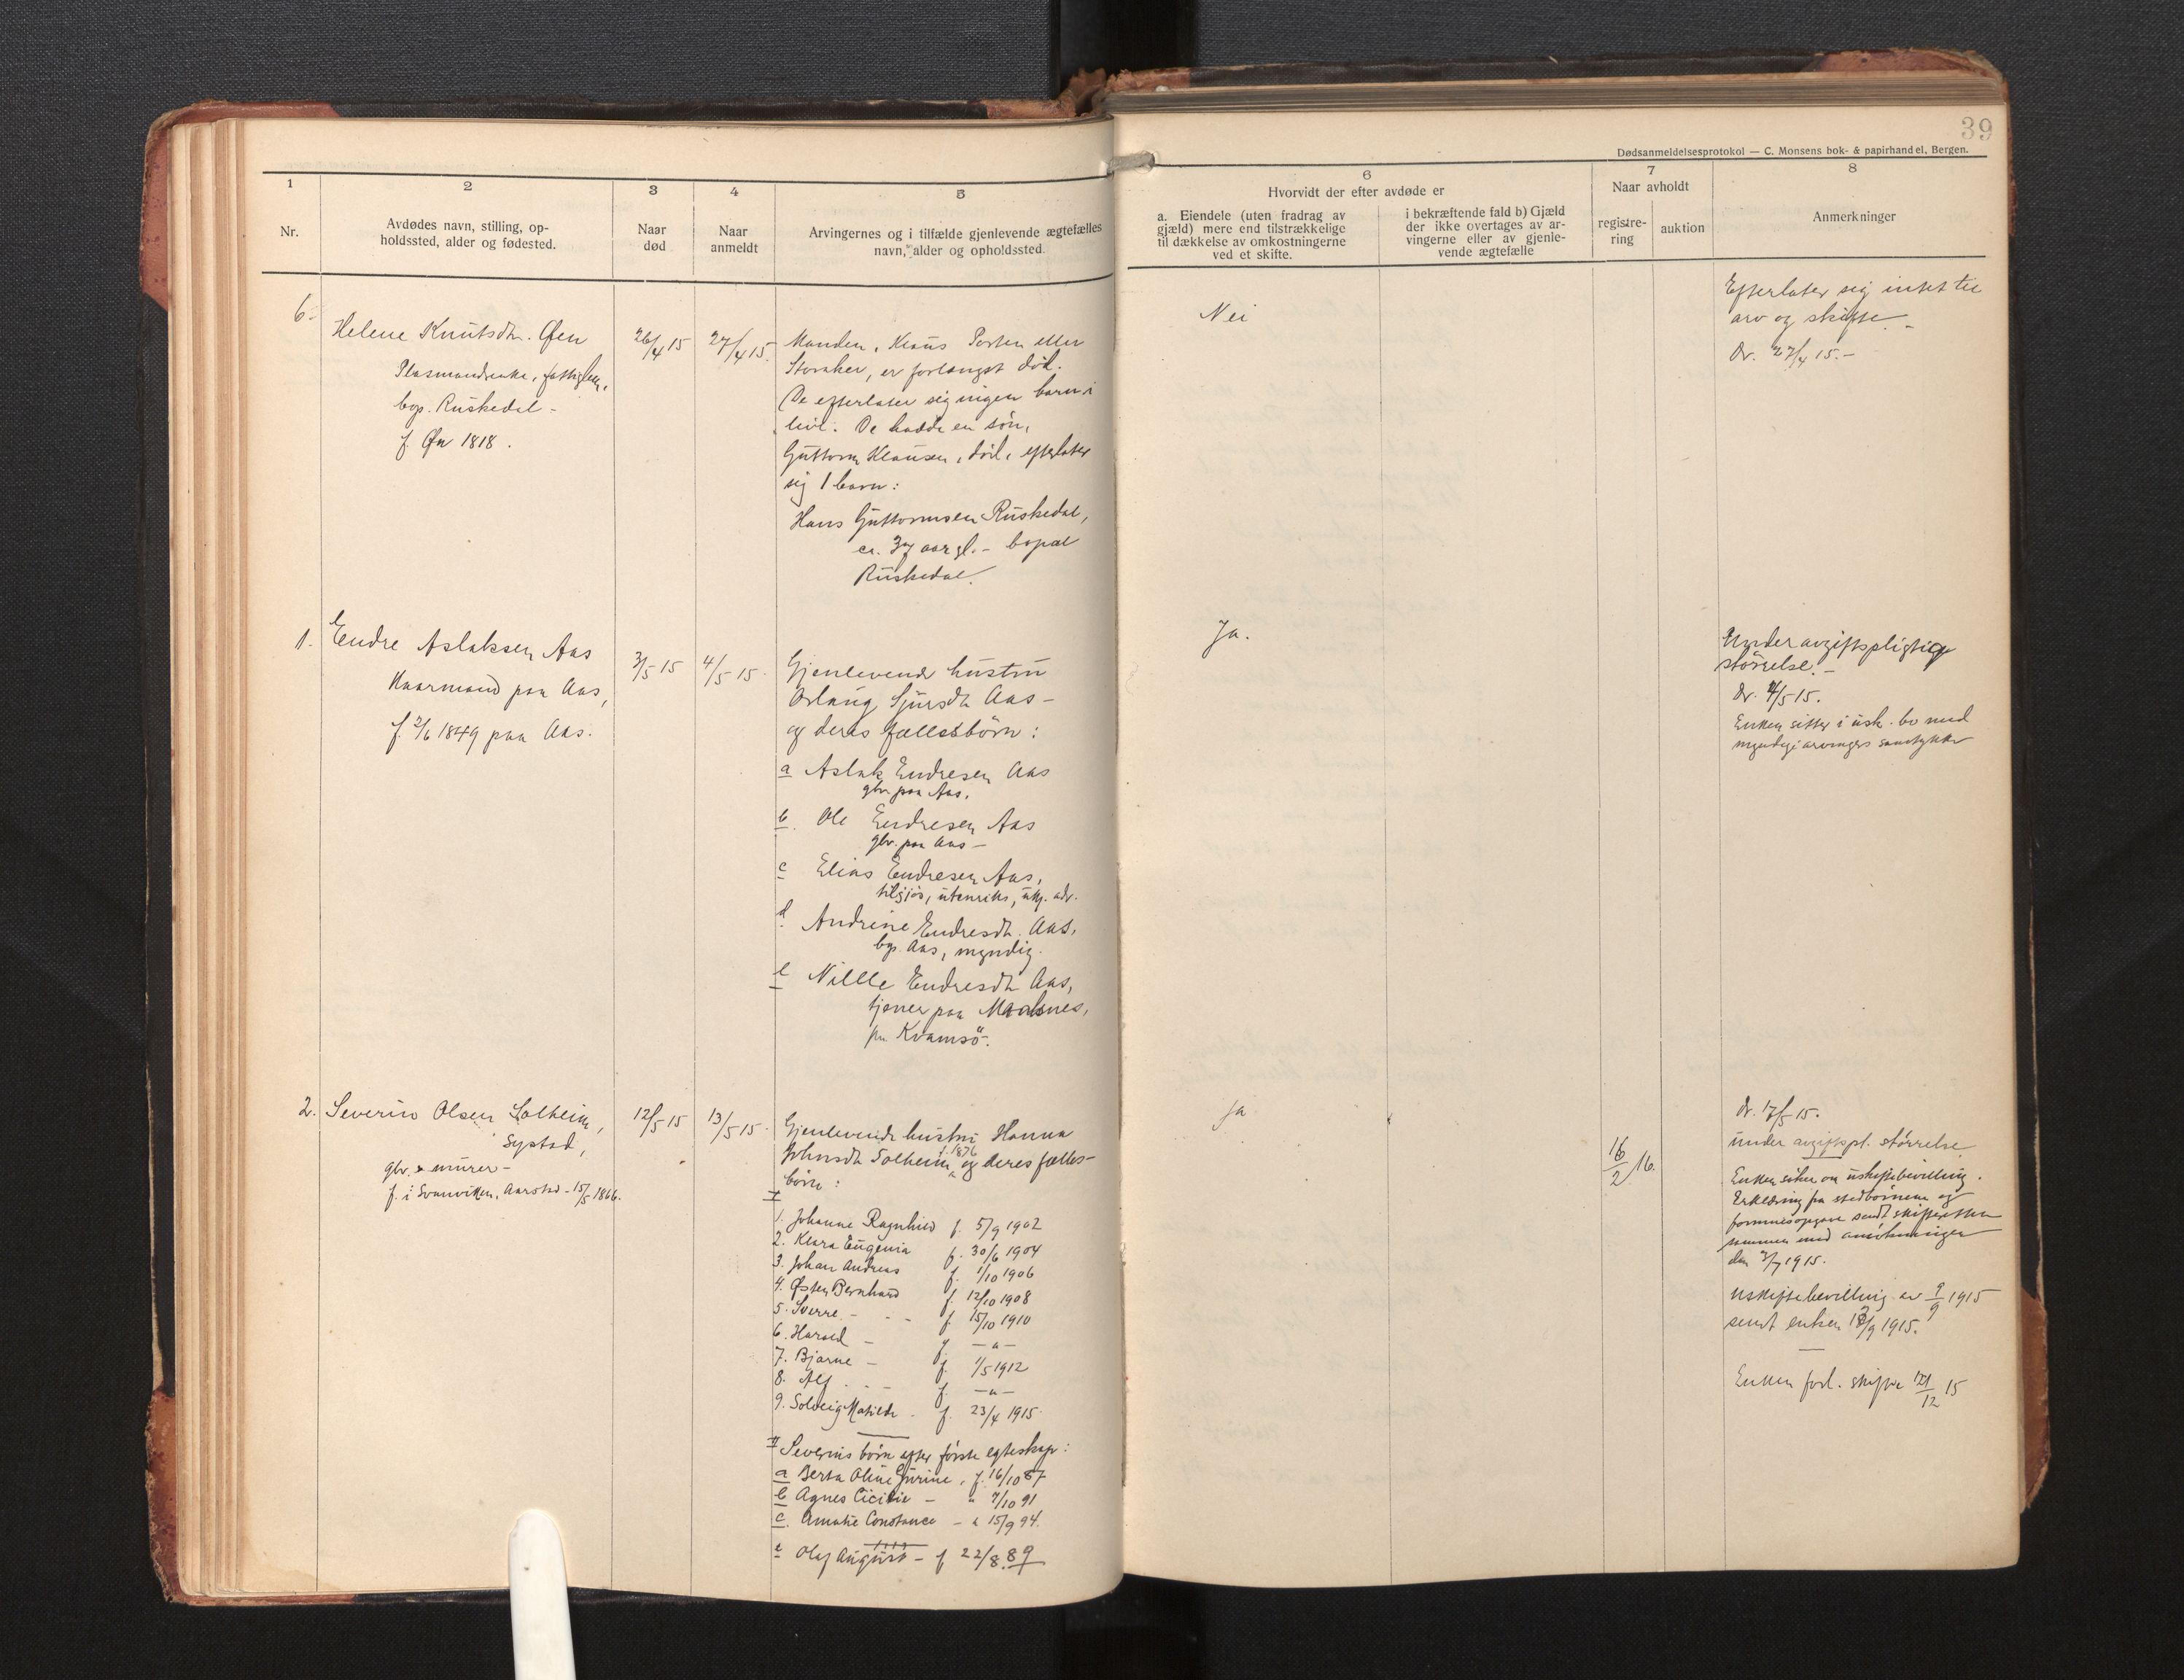 39
Dødsanmeldelsesprotokol — C. Monsens bok- & papirhandel, Bergen.
1
2
3
4
5
6
7
8
Nr.
Avdødes navn, stilling, op-
holdssted, alder og fødested.
Naar
død
Naar
anmeldt
Arvingernes og i tilfælde gjenlevende ægtefælles
navn, alder og opholdssted.
Hvorvidt der efter avdøde er
a. Eiendele (uten fradrag av
gjæld) mere end tilstrækkelige
til dækkelse av omkostningerne
ved et skifte.
i bekræftende fald b) Gjæld
der ikke overtages av ar-
vingerne eller av gjenle-
vende ægtefælle
Naar avholdt
registre-
ring
auktion
Anmerkninger
6.
Helene Knutsdtr. Øen
bop. Ruskedal -
f. Øen 1818.
26/4 15
27/4 15.
Manden, Klaus Porten eller
, er forlængst död.
De efterlater sig ingen barn i
live. De hadde en sön,
Guttorm Klausen, död, efterlater
sig 1 barn:
Hans Guttormsen Ruskedal,
ca. 37 aar gl. - bopæl
Ruskedal.
Nei
Efterlater sig intet til
arv og skifte. -
Dr. 27/4 15. -
1.
Endre Aslaksen Aas
Kaarmand paa Aas,
f. 2/6 1849 paa Aas.
3/5 15
4/5 15.
Gjenlevende hustru
Sjursdtr Aas -
og deres fællesbörn:
a Aslak Endresen Aas
gbr paa Aas.
b. Ole Endresen Aas
gbr. paa Aas -
c Elias Endresen Aas,
tilsjös, utenriks, ukj. adr.
d. Andrine Endresdtr. Aas,
bop. Aas, myndig.
e Nille Endresdtr Aas,
tjener paa Maalsnes,
pr. Kvamsö.
Ja.
Under avgiftspligtig
störrelse. -
Dr. 4/5 15.
Enken sitter i usk. bo med
myndige arvingers samtykke
2.
Severin Olsen Solheim,
Systad,
gbr. & murer -
f. i Svanviken, Aarstad - 15/5 1866.
12/5 15
13/5 15.
Gjenlevende hustru Hanna
Johnsdtr Solheim f. 1876 og deres fælles-
börn:
I
1. Johanne Ragnhild f. 5/9 1902
2. Klara Eugenia f. 30/6 1904
3. Johan Andreas f. 1/10 1906
4. Østen Bernhard f. 12/10 1908
5. Sverre - - - f 15/10 1910
6. Harald - f - " -
7. Bjarne - f. 1/5 1912
8. Alf - - f. - " -
9. Solveig Matilde - f. 23/4 1915
II Severins börn efter förste egteskap:
a Berta Oline Gurine, f. 16/10 87
b Agnes Cicilie - " 7/10 91
c. Amalie Constance - " 15/9 94.
e Olaf August - f 22/8. 89
Ja
16/2 16.
Dr. 17/5 15.
under avgiftspl. störrelse
Enken söker om uskiftebevilling.
Erklæring fra stedbörnene og
formuesopgave sendt skifteretten
sammen med ansökningen
den 3/7 1915.
Uskiftebevilling av 9/9 1915
sendt enken /9 1915.
Enken forl. skifte /12 15